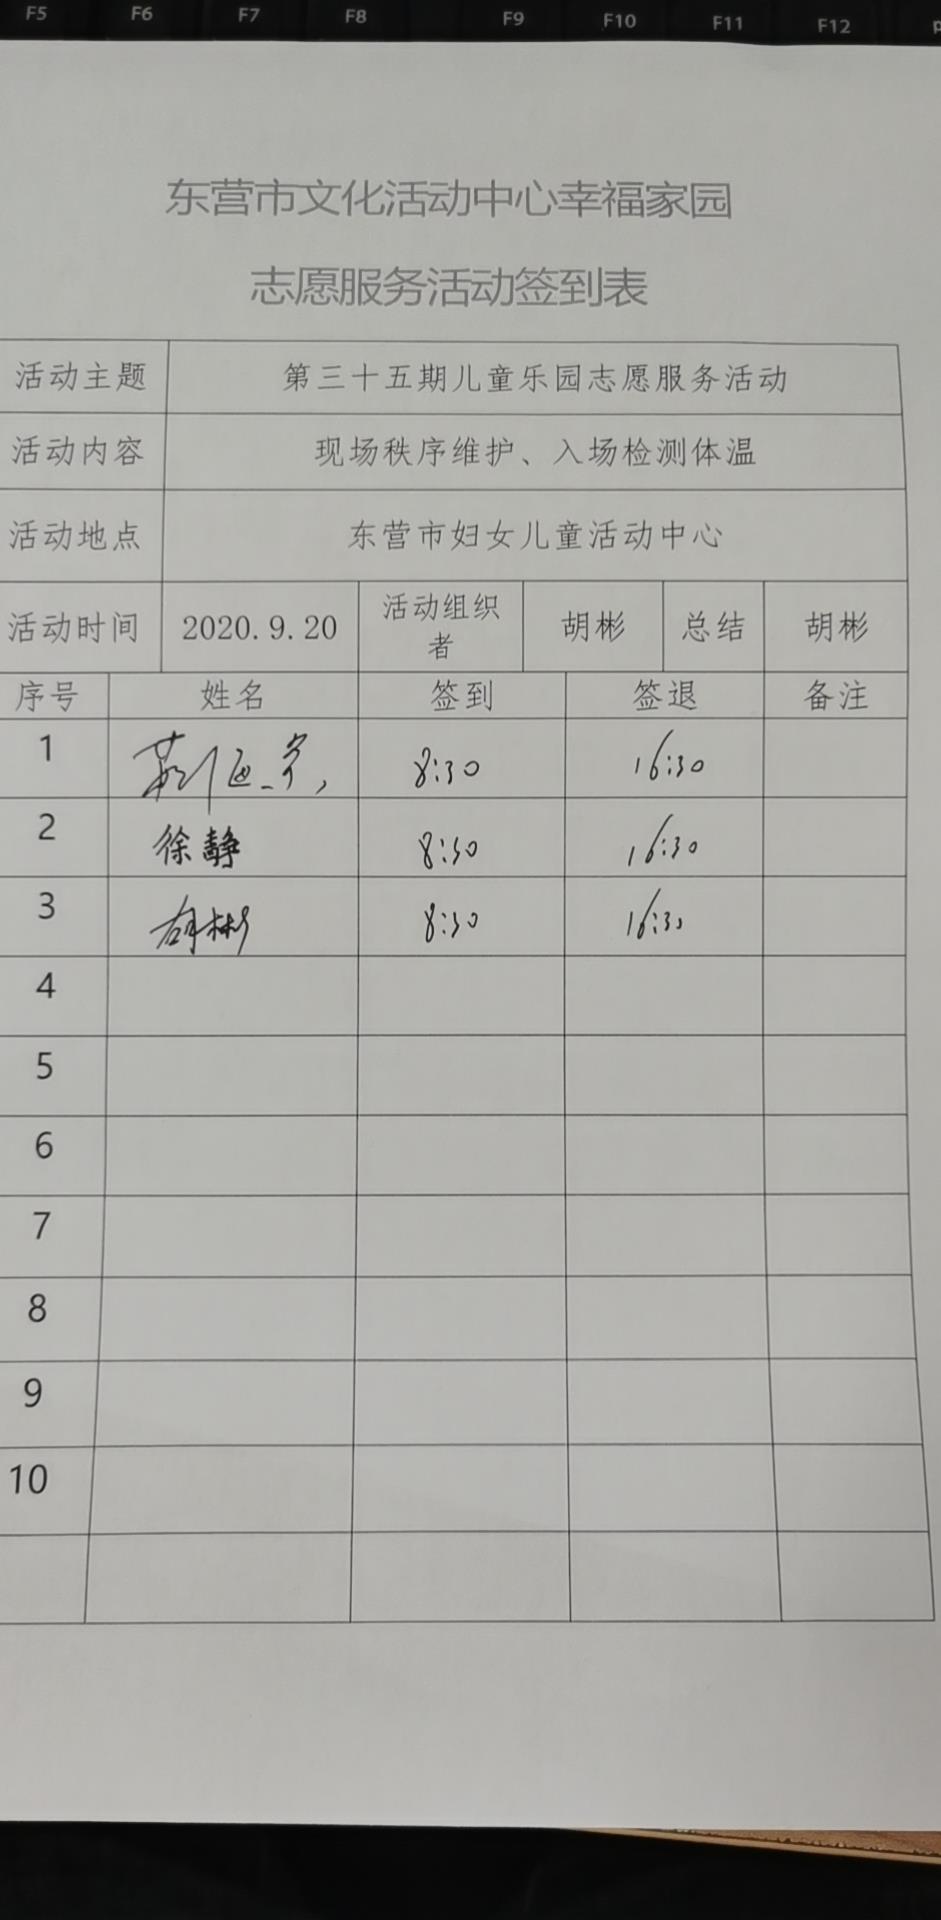 F5 F6 F7 F8 F9 F10 F11 F12
东营市文化活动中心幸福家园
志愿服务活动签到表
活动主题 第三十五期儿童乐园志愿服务活动
活动内容 现场秩序维护、入场检测体温
活动地点 东营市妇女儿童活动中心
活动时间 2020.9.20 活动组织者 胡彬 总结 胡彬
序号 姓名 签到 签退 备注
1 8:30 16:30
2 徐静 8:30 16:30
3 胡彬 8:30 16:30
4
5
6
7
8
9
10